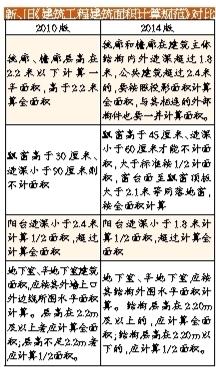 新、旧《建筑工程建筑面积计算规范》对比
2010版
2014版
挑廊、檐廊层高在
2.2米以下计算一
半面积,高于2.2米
算全面积
挑廊和檐廊在建筑主体
结构内外进深超过1.8
米,公共建筑超过2.4米
的,要按照投影面积计算
全面积,与其相连的外部
构件也要一并计算面积。
飘窗高于30厘米、
进深小于90厘米则
不计面积
飘窗高于45厘米、进深
小于60厘米才能不计面
积,大于标准按1/2计面
积,窗台面至飘窗顶板
大于2.1米带用落地窗,
按全面积计算
阳台进深小于2.4米
计算1/2面积,超过
计算全面积
阳台进深小于1.8米计
算1/2面积,超过计算全
面积
地下室、半地下室建筑
面积,应按其外墙上口
外边线所围水平面积
计算。层高在2.2m
及以上者应计算全面
积;层高不足2.2m者
应计算1/2面积。
地下室、半地下室,应按
其结构外围水平面积计
算。结构层高在2.20m
及以上的,应计算全面
积;结构层高在2.20m以
下的,应计算1/2面积。